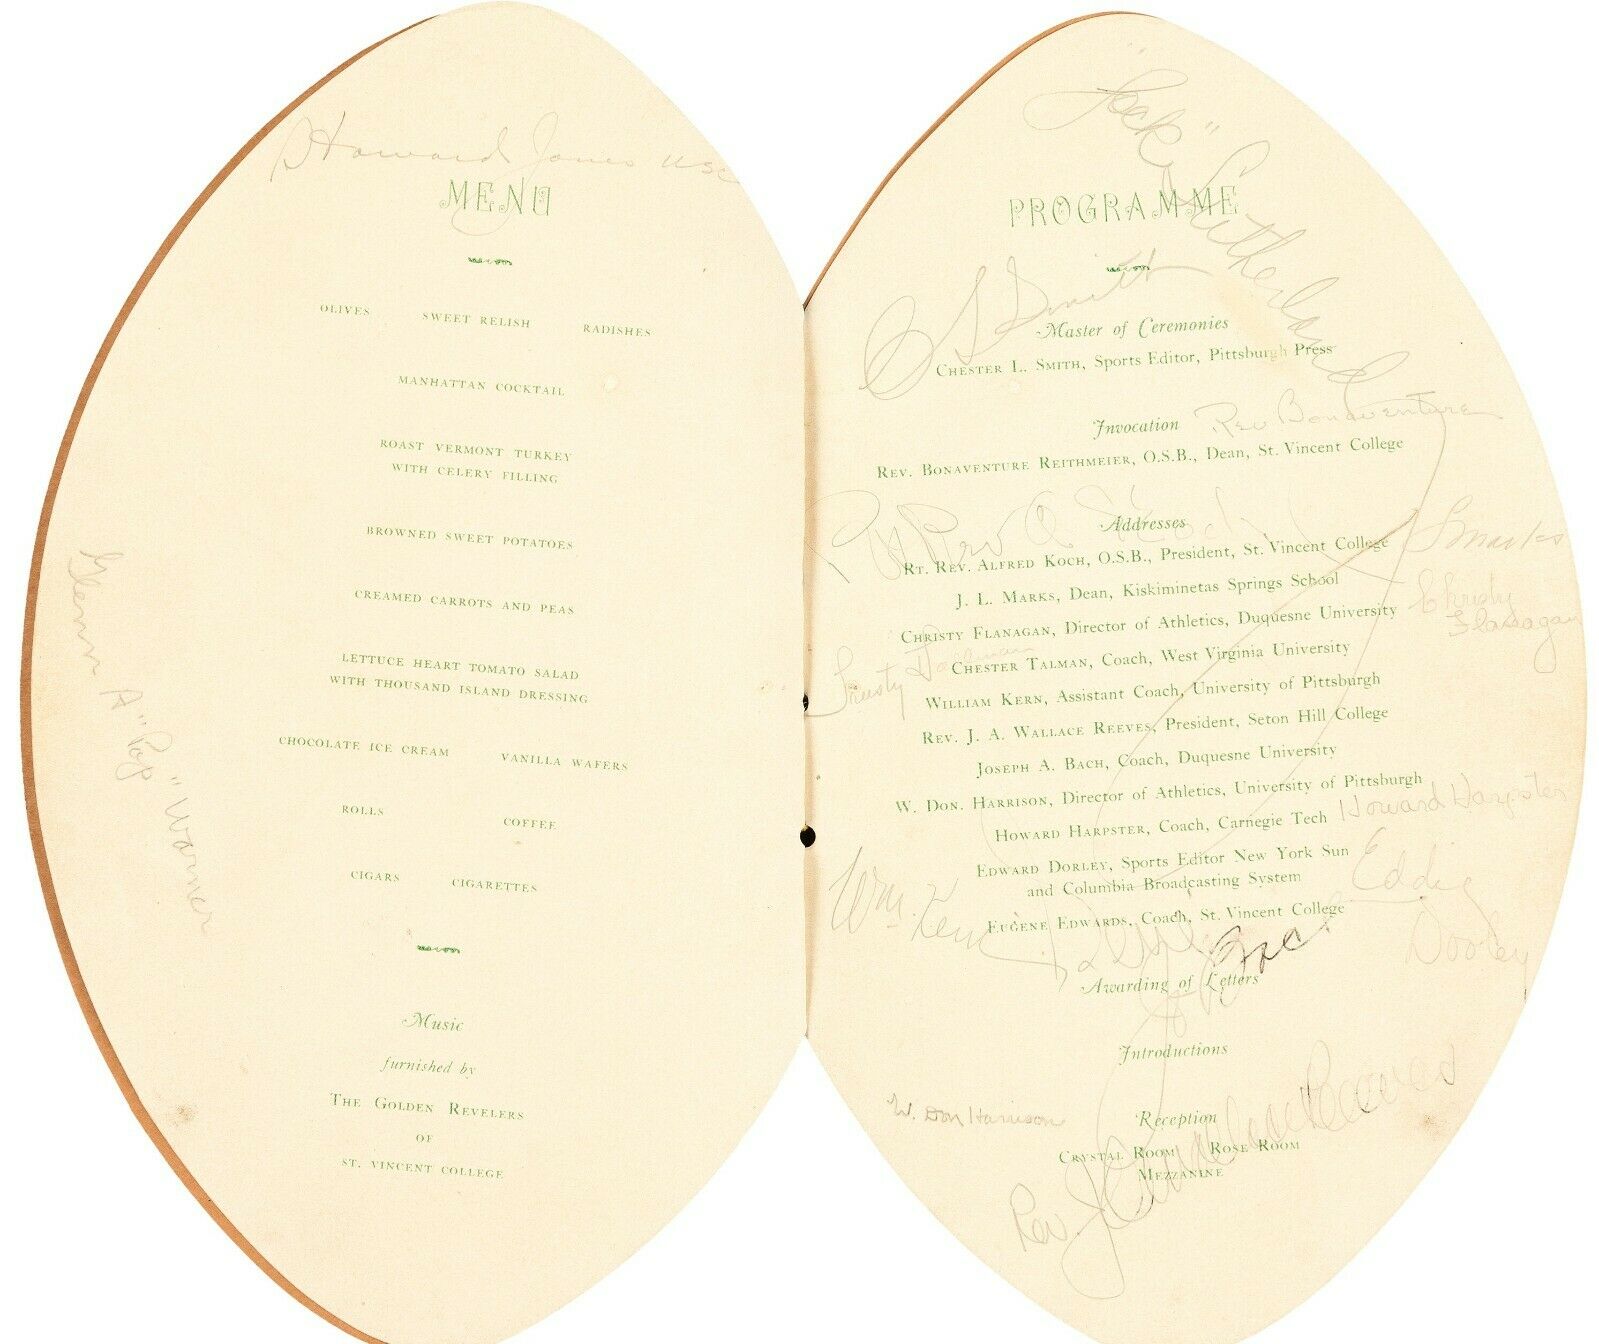 Howard Jones USC
MENU
OLIVES SWEET RELISH RADISHES
MANHATTAN COCKTAIL
ROAST VERMONT TURKEY
WITH CELERY FILLING
BROWNED SWEET POTATOES
CREAMED CARROTS AND PEAS
LETTUCE HEART TOMATO SALAD
WITH THOUSAND ISLAND DRESSING
CHOCOLATE ICE CREAM VANILLA WAFERS
ROLLS COFFEE
CIGARS CIGARETTES
Glenn A "Pop" Warner
Music
furnished by
THE GOLDEN REVELERS
OF
ST. VINCENT COLLEGE
"Jock" Sutherland
PROGRAMME
C L Smith
Master of Ceremonies
CHESTER L. SMITH, Sports Editor, Pittsburgh Press
Invocation Rev Bonaventure
REV. BONAVENTURE REITHMEIER, O.S.B., Dean, St. Vincent College
Rt Rev A Koch
Addresses
RT. REV. ALFRED KOCH, O.S.B., President, St. Vincent College
J. L. MARKS, Dean, Kiskiminetas Springs School
Marks
CHRISTY FLANAGAN, Director of Athletics, Duquesne University
Christy
Flanagan
CHESTER TALMAN, Coach, West Virginia University
WILLIAM KERN, Assistant Coach, University of Pittsburgh
REV. J. A. WALLACE REEVES, President, Seton Hill College
JOSEPH A. BACH, Coach, Duquesne University
W. DON. HARRISON, Director of Athletics, University of Pittsburgh
HOWARD HARPSTER, Coach, Carnegie Tech Howard Harpster
EDWARD DORLEY, Sports Editor New York Sun
and Columbia Broadcasting System
Eddie
Dooley
EUGENE EDWARDS, Coach, St. Vincent College
Wm. Kern
Awarding of Letters
Introductions
W. Don Harrison
Reception
CRYSTAL ROOM ROSE ROOM
MEZZANINE
Rev J A Wallace Reeves